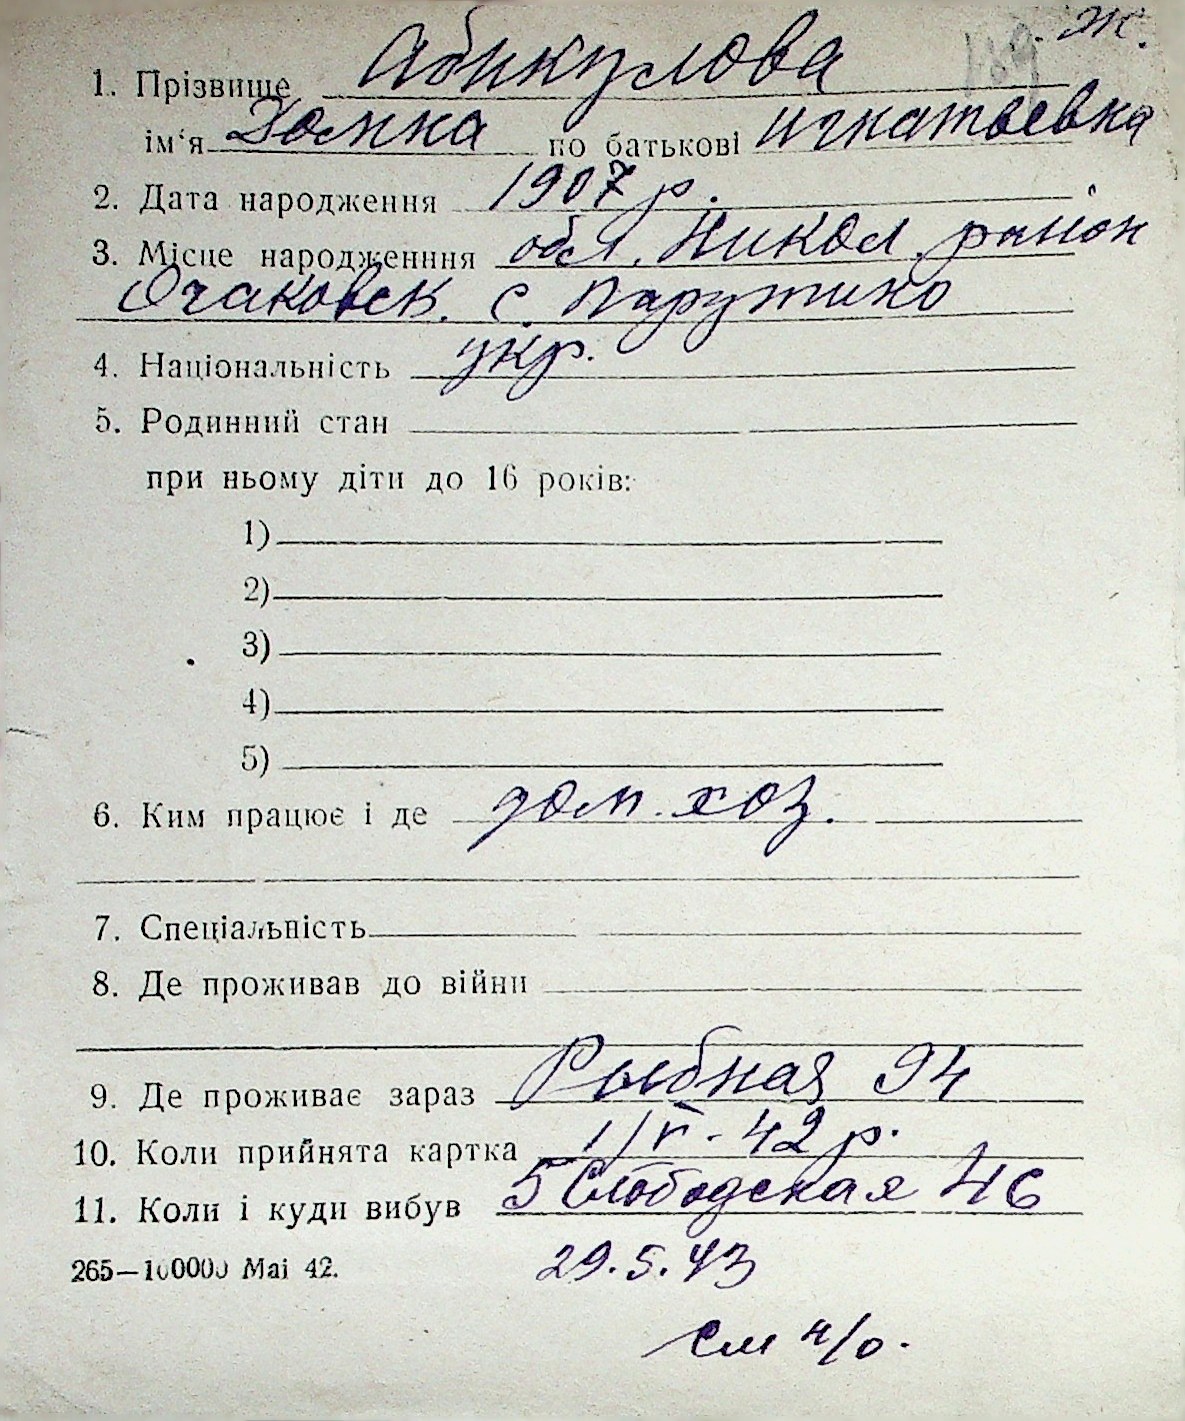 ж.
1. Прізвище Абикулова
ім'я Домка по батькові Игнатьевна
2. Дата народження 1907 р.
3. Місце народженння обл. Никол. район
Очаковск. с. Парутино
4. Національність укр.
5. Родинний стан
при ньому діти до 16 років:
1)
2)
3)
4)
5)
6. Ким працює і де дом. хоз.
7. Спеціальність
8. Де проживав до війни
9. Де проживає зараз Рыбная 94
10. Коли прийнята картка - 42 р.
11. Коли і куди вибув 5 Слободская 46
265—100000 Mai 42. 29.5.43
см н/о.